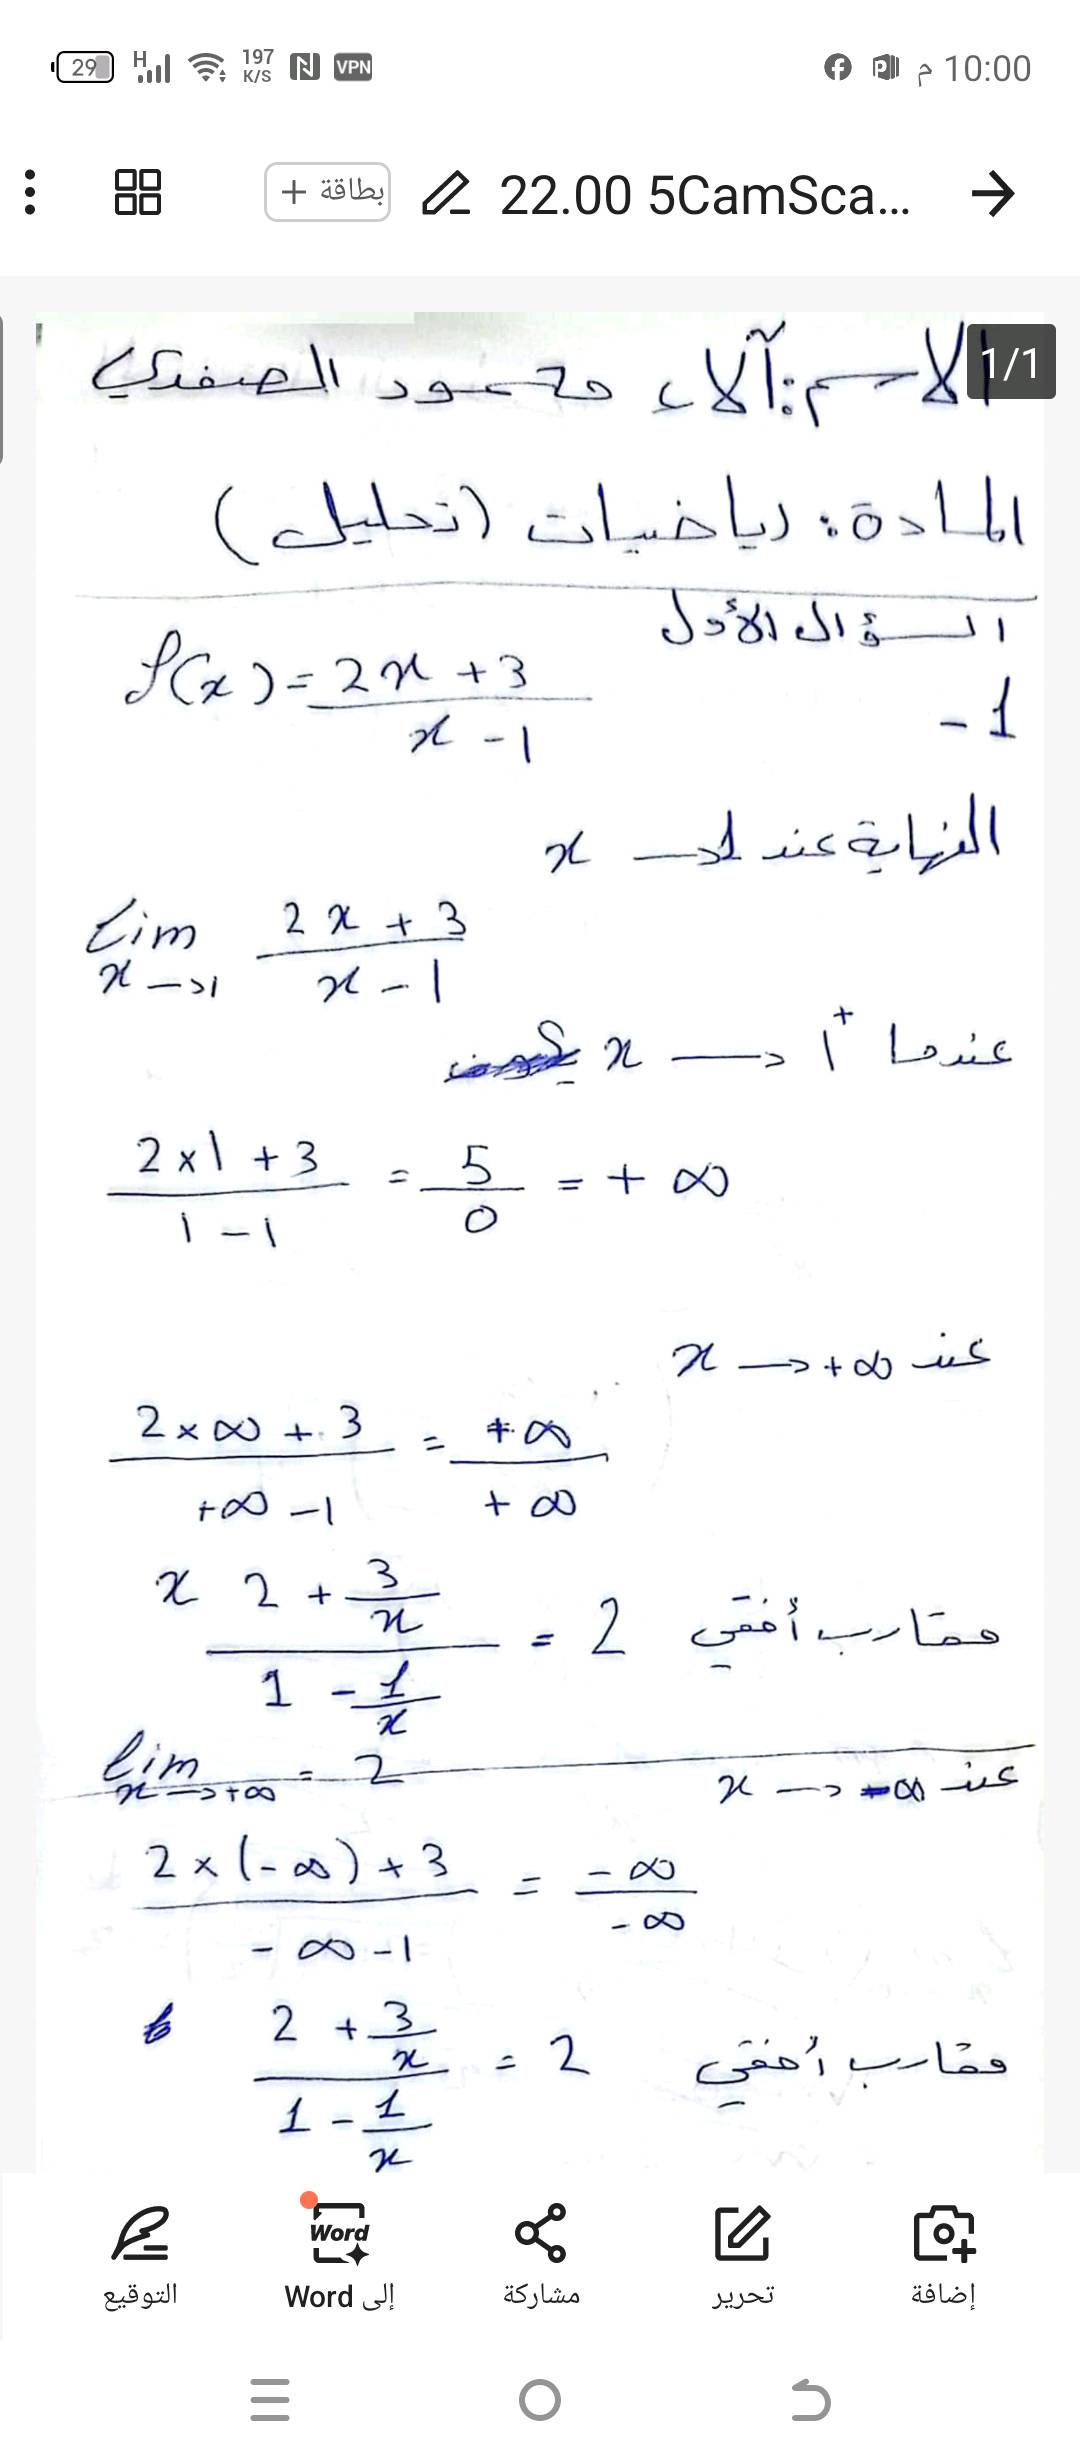 29 H 197 K/S N VPN
10:00 م
بطاقة +
22.00 5CamSca...
1/1
الاسم: آلاء محمود الصفدي
المادة: رياضيات (تحليل)
السؤال الأول
1 -
f(x) = 2x + 3 / x - 1
النهاية عند x → 1
lim x→1 2x + 3 / x - 1
عندما x → 1⁺
2 × 1 + 3 / 1 - 1 = 5 / 0 = + ∞
عند x → +∞
2 × ∞ + 3 / +∞ - 1 = +∞ / +∞
x 2 + 3/x / 1 - 1/x = 2 مقارب أفقي
lim x→+∞ = 2
عند x → -∞
2 × (-∞) + 3 / - ∞ - 1 = - ∞ / - ∞
2 + 3/x / 1 - 1/x = 2 مقارب أفقي
إضافة
تحرير
مشاركة
Word
إلى Word
التوقيع